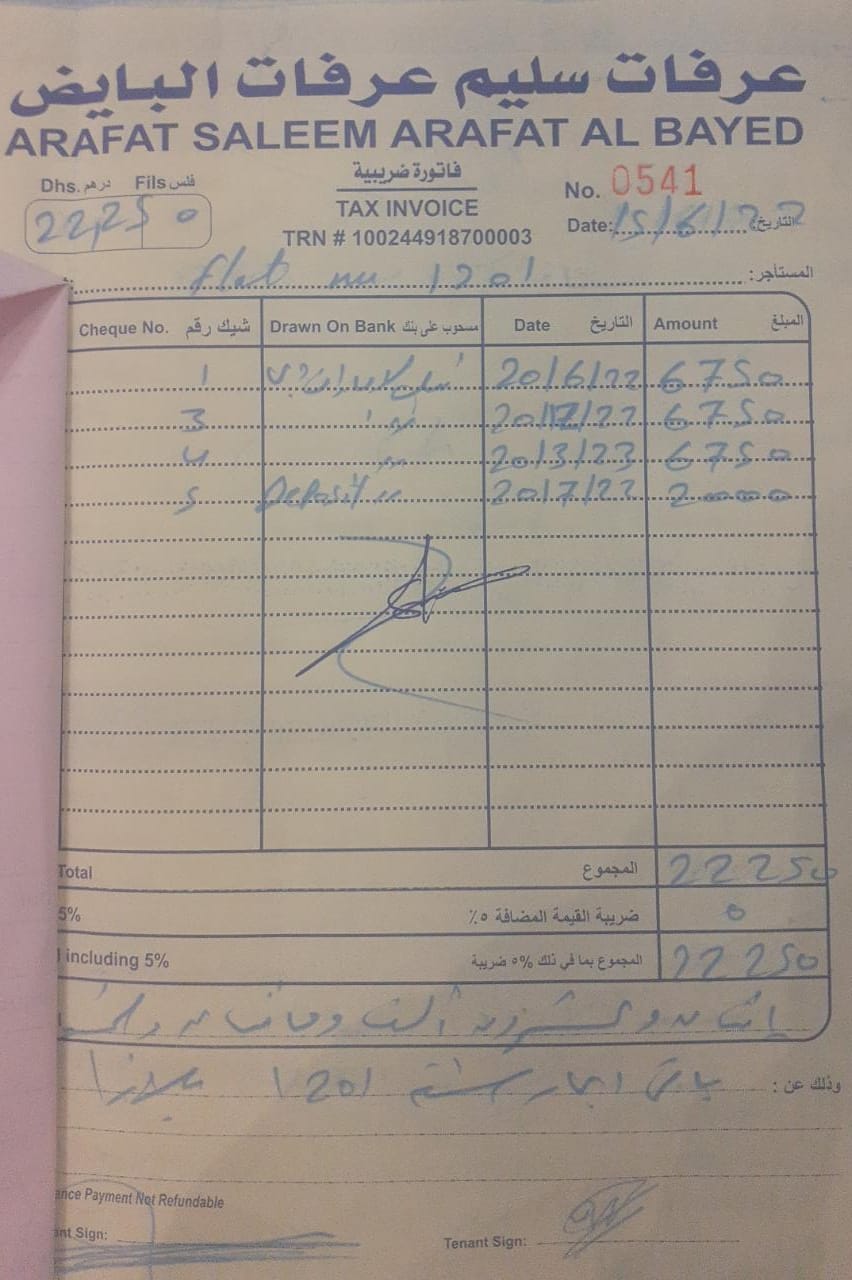 عرفات سليم عرفات البايض
ARAFAT SALEEM ARAFAT AL BAYED
Dhs. درهم Fils فلس
22,250
فاتورة ضريبية
TAX INVOICE
TRN # 100244918700003
No. 0541
Date: 15/6/22 التاريخ:
flat no 1201 المستأجر:
Cheque No. شيك رقم Drawn On Bank مسحوب على بنك Date التاريخ Amount المبلغ
1 20/6/22 6750
3 20/12/22 6750
4 20/3/23 6750
5 Deposit 20/7/22 2000
Total المجموع 22250
5% ضريبة القيمة المضافة ٥٪ 0
including 5% المجموع بما في ذلك ٥% ضريبة 22250
وعشرون ألف
وذلك عن : باقي ايجار شقة 1201
ance Payment Not Refundable
nt Sign:
Tenant Sign: